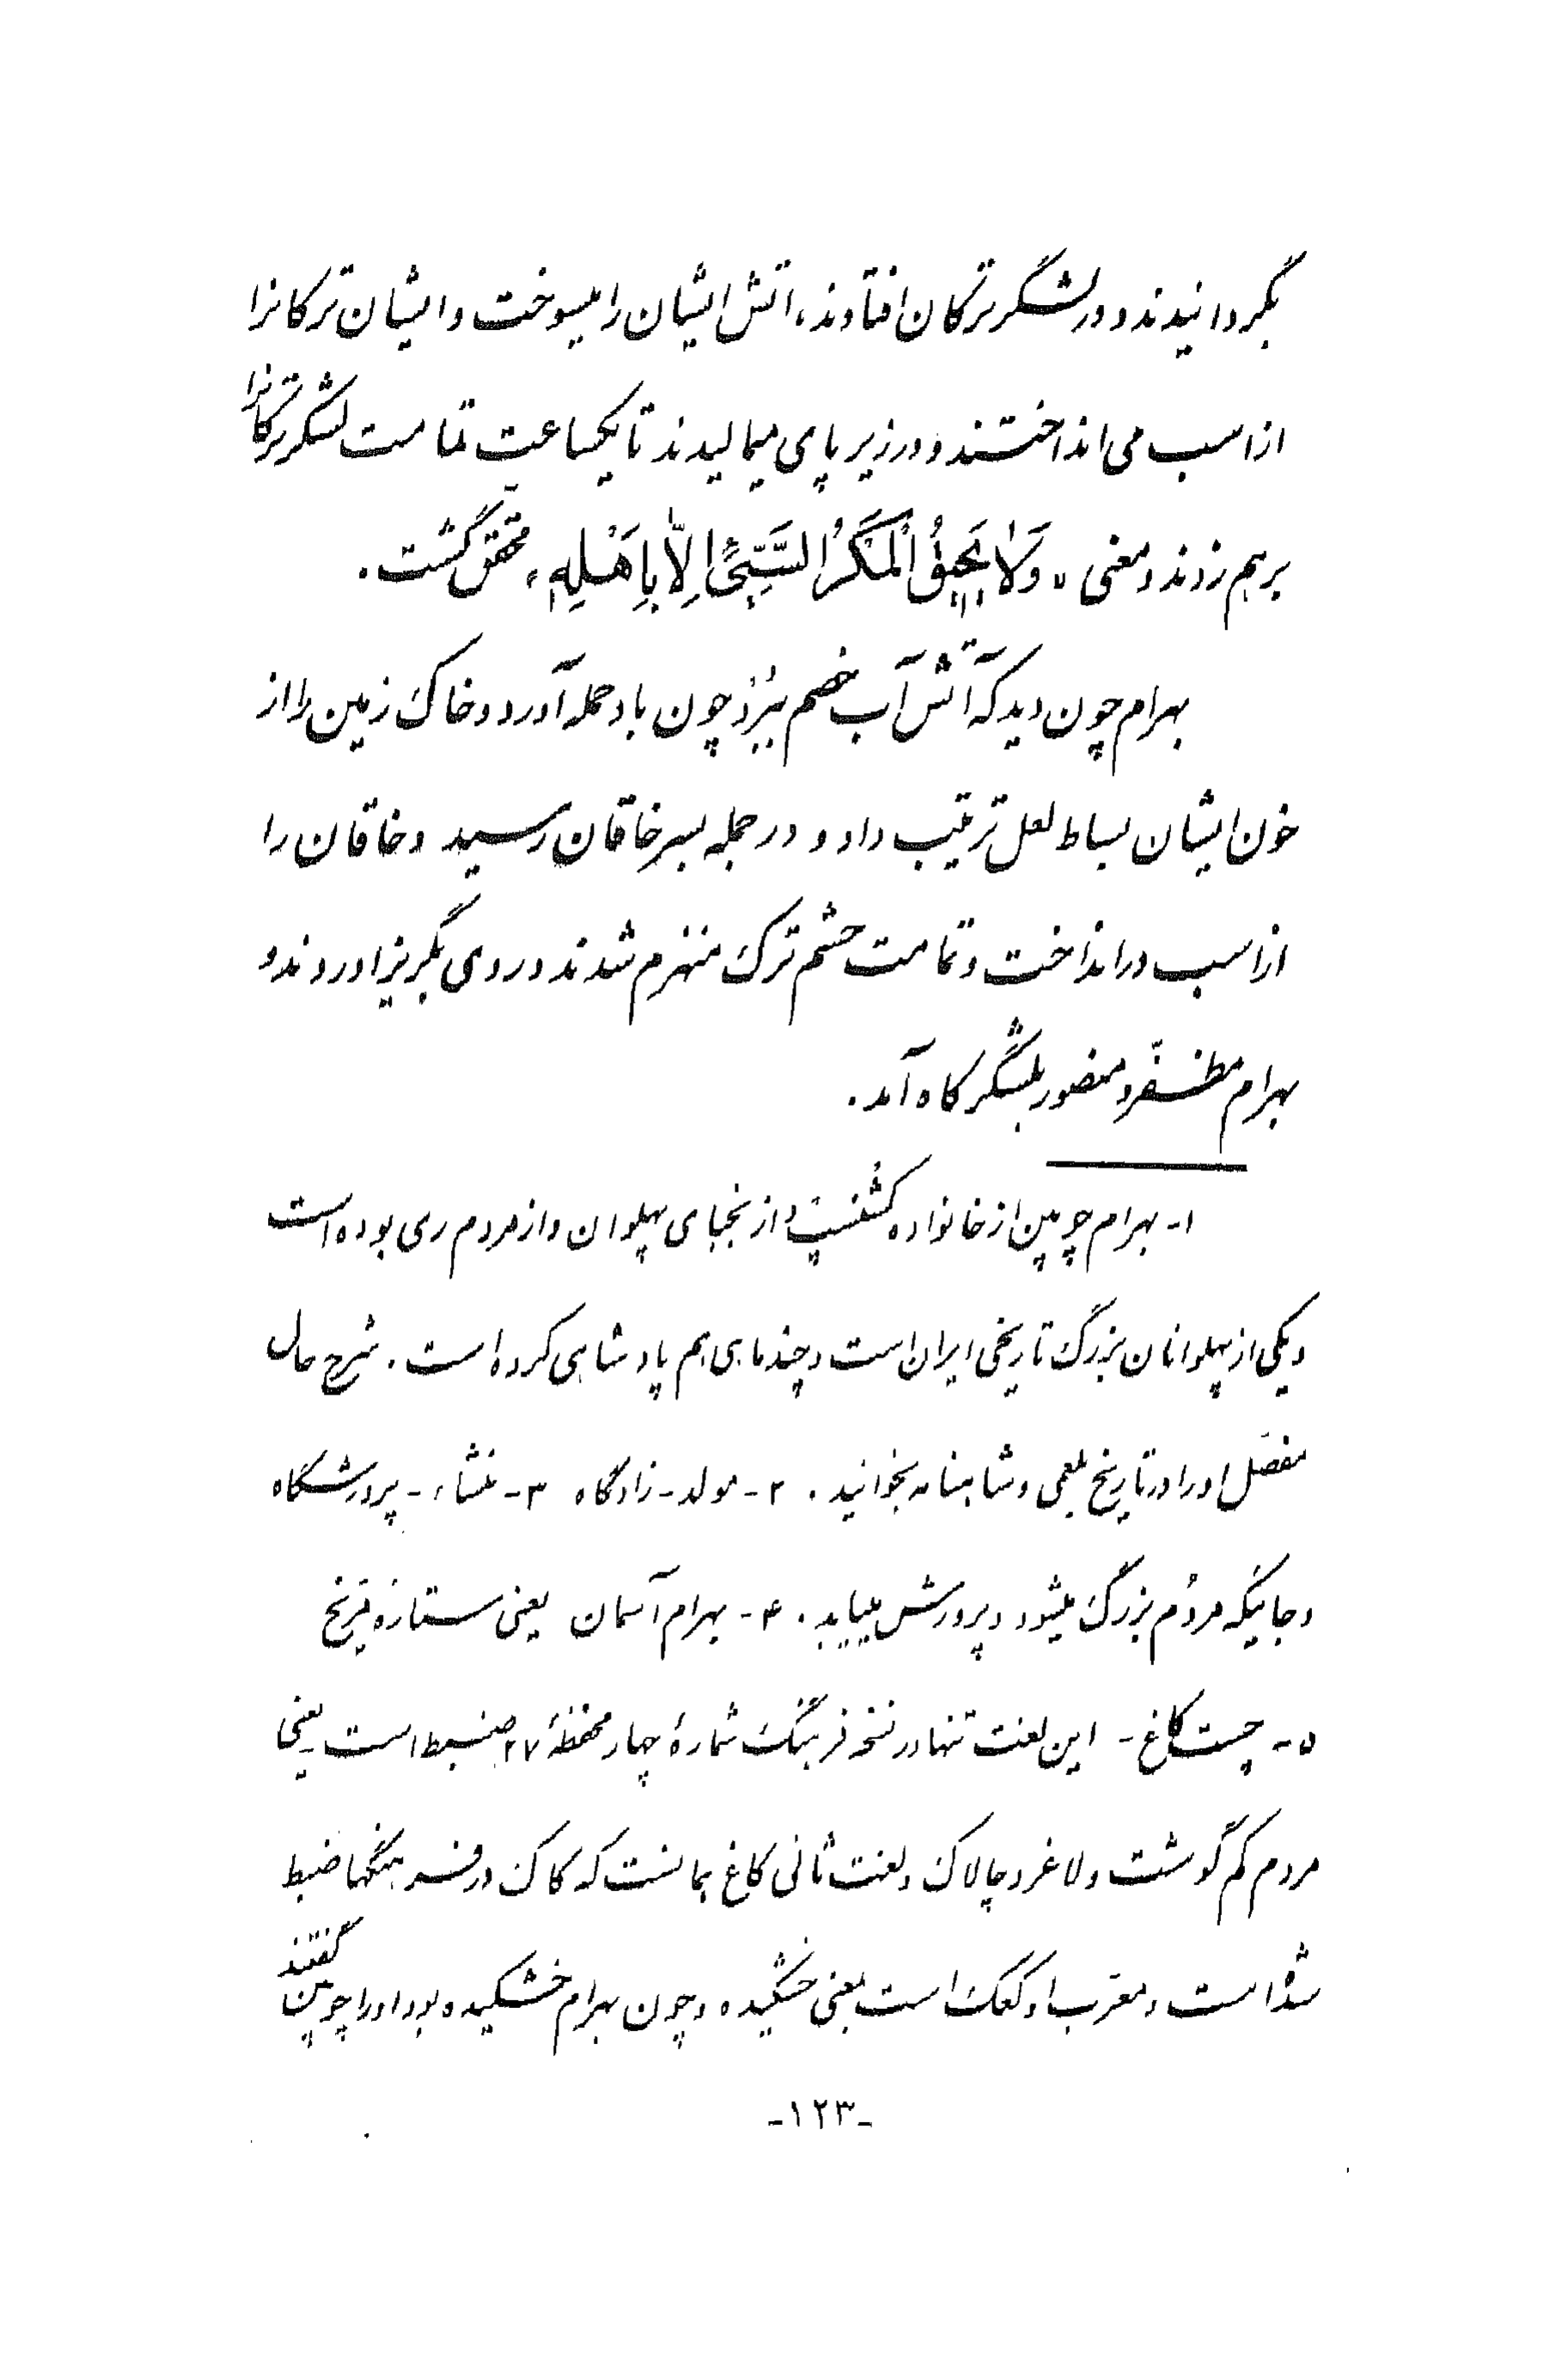 بگردانیدند و در لشگر ترکان افتادند، اتش ایشان را میسوخت و ایشان ترکانرا
از اسب می انداختند و در زیر پای میمالیدند تا یکساعت تمامت لشگر ترکانرا
برهم زدند و معنی «وَلا يَحيقُ الْمَكْرُ السَّيِّئُ اِلّا بِاَهْلِهِ» محقق گشت.
بهرام چون دید که آتش آب خصم ببُرد چون باد حمله آورد و خاک زمین را از
خون ایشان بساط لعل ترتیب داد و در حمله بسر خاقان رسید و خاقان را
از اسب درانداخت و تمامت حشم ترک منهزم شدند و روی بگریز اوردند و
بهرام مظفّر و منصور بلشگرگاه آمد.
۱- بهرام چوبین از خانواده گُشنسپ و از نجبای پهلوان و از مردم ری بوده است
و یکی از پهلوانان بزرگ تاریخی ایران است و چند ماهی هم پادشاهی کرده است. شرح حال
مفصّل او را در تاریخ بلعمی و شاهنامه بخوانید. ۲- مولد - زادگاه ۳- منشاء - پرورشگاه
و جائیکه مردُم بزرگ میشود و پرورش مییابد. ۴- بهرام آسمان یعنی ستارهٔ مرّیخ
۵- چست کاغ - این لغت تنها در نسخه فرهنگ شمارهٔ چهار محفظهٔ ۲۷ ضبط است یعنی
مردم کم گوشت و لاغر و چالاک و لغت ثانی کاغ همانست که کاک در فرهنگها ضبط
شده است و معرّب او کعک است بمعنی خشکیده و چون بهرام خشکیده بود او را چوبین گفتند
-۱۲۳-